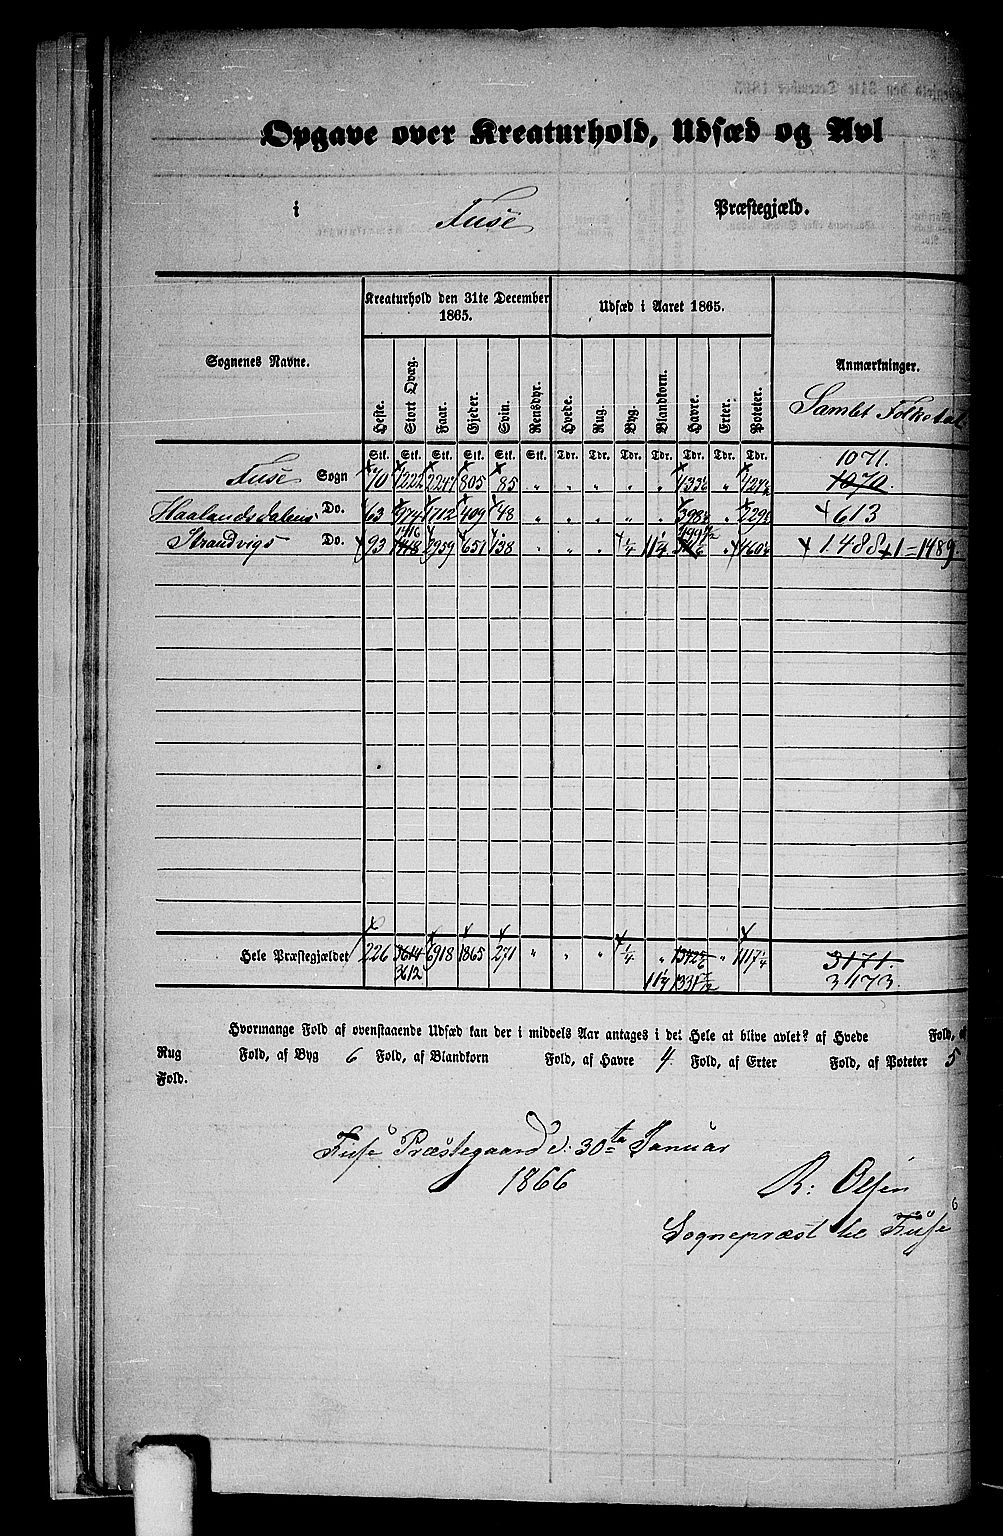 Opgave over Kreaturhold, Udsæd og Avl
i Fuse Præstegjæld.
Kreaturhold den 31te December 1865.
Udsæd i Aaret 1865.
Sognenes Navne.
Heste. Stort Qvæg. Faar. Gjeder. Sviin. Rensdyr. Hvede. Rug. Byg. Blandkorn. Havre. Erter. Poteter.
Anmærkninger.
Samlet Folketal
Stk. Stk. Stk. Stk. Stk. Stk. Tdr. Tdr. Tdr. Tdr. Tdr. Tdr. Tdr.
1071.
Fuse Sogn 70 1222 2247 805 85 " " " " " " 1070
Haalandsdalens Do. 63 974 1712 409 48 " " " " " " 613
1416
Strandvigs Do. 93 1418 2959 651 138 " " " 1/4 11 1/4 " 1488+1=1489
Hele Præstegjældet 226 3614 6918 1865 271 " " " 1/4 " " 1117 1/4 3171.
3612 11 1/4 3173.
Hvormange Fold af ovenstaaende Udsæd kan der i middels Aar antages i det Hele at blive avlet? af Hvede Fold, af
Rug Fold, af Byg 6 Fold, af Blandkorn Fold, af Havre 4 Fold, af Erter Fold, af Poteter 5
Fold.
Fuse Præstegaard d: 30te Januar
1866
R: Olsen
Sognepræst til Fuse